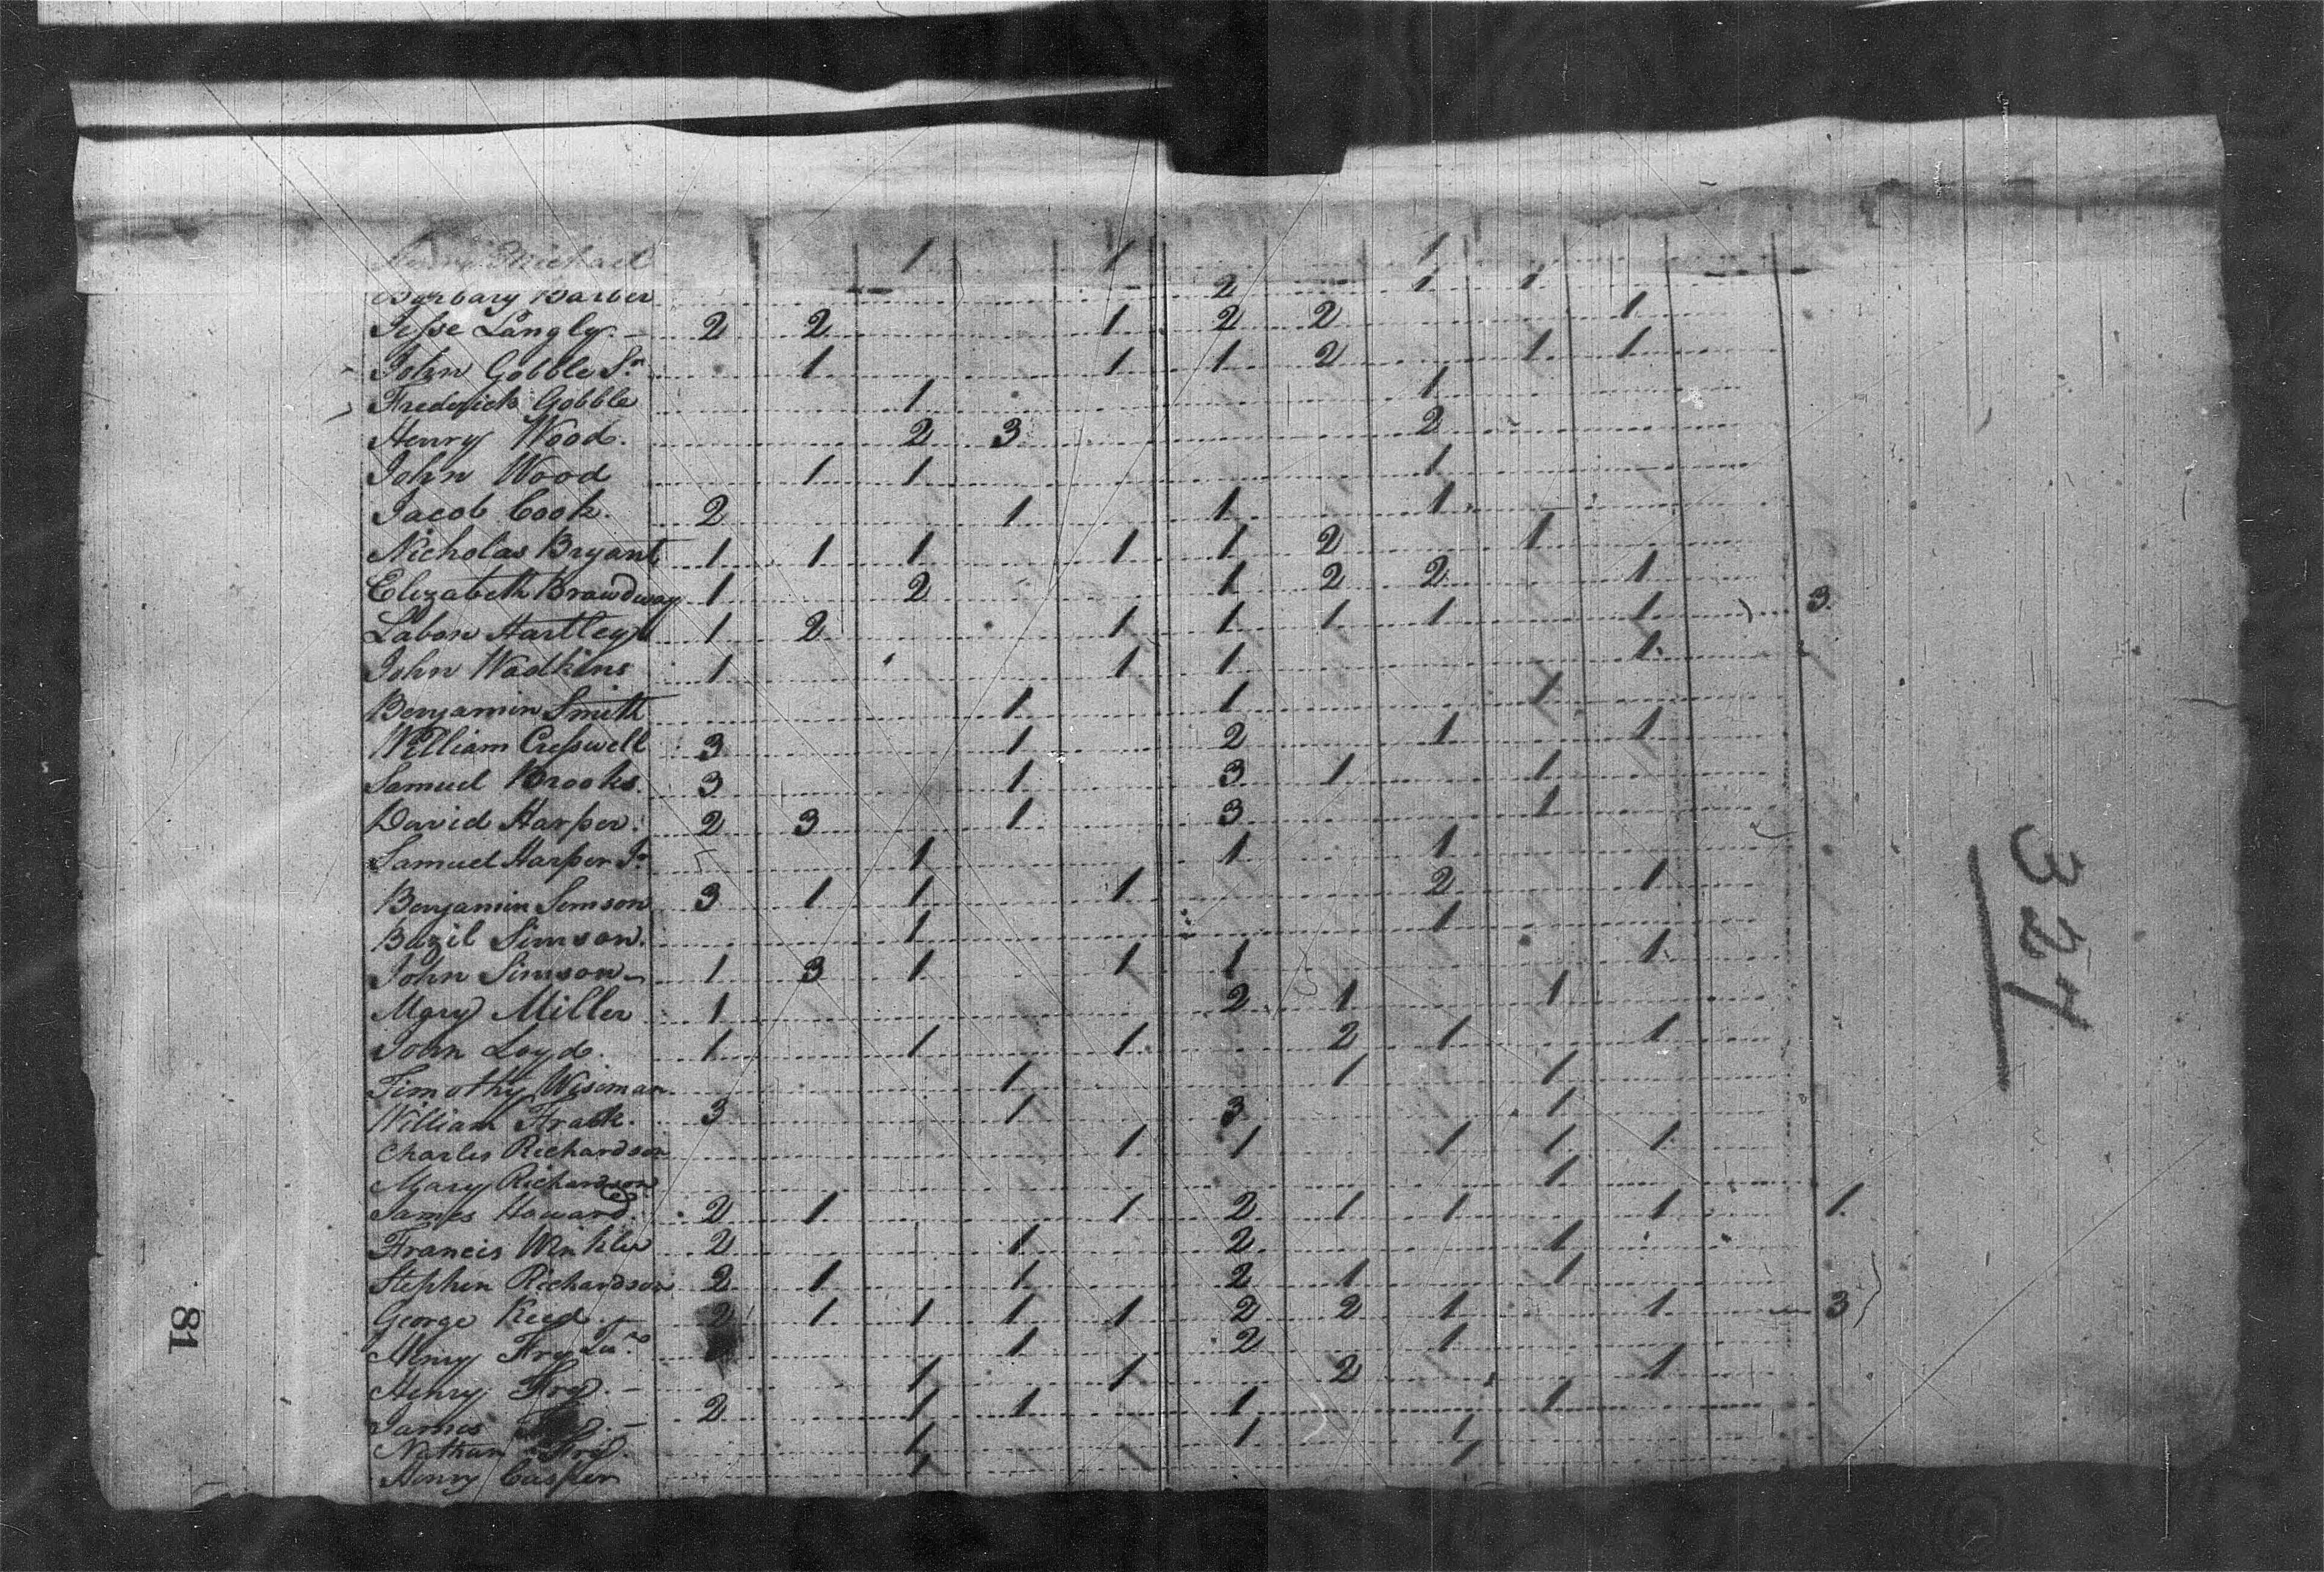 Michael 1 1 1
Barbary Barber 2 1 1
Jesse Langly. 2 2 1 2 2 1
John Gobble Sr 1 1 1 2 1 1
Frederick Gobble 1 1
Henry Wood. 2 3 2
John Wood 1 1 1
Jacob Cook. 2 1 1 1
Nicholas Bryant 1 1 1 1 1 2 1
Elizabeth Brawdway 1 2 1 2 2 1
Labon Hartley 1 2 1 1 1 1 1 3
John Wadkins 1 1 1 1
Benjamin Smith 1 1 1
William Creswell 3 1 2 1 1
Samuel Brooks. 3 1 3 1 1
David Harper. 2 3 1 3 1
Samuel Harper Jr 1 1 1
Benjamin Semson 3 1 1 1 2 1
Bazil Simson. 1 1
John Simson 1 3 1 1 1 1
Mary Miller 1 2 1 1
John Loyd. 1 1 1 2 1 1
Timothy Wiseman 1 1 1
William Frank. 3 1 3 1
Charles Richardson 1 1 1 1 1
Mary Richardson 1
James Howard. 2 1 1 2 1 1 1 1
Francis Winkler 2 1 2 1
Stephen Richardson 2 1 1 2 1 1
George Reed. 2 1 1 1 1 2 2 1 1 3
Henry Fry Jur 1 2 1
Henry Fry. 1 1 2 1
James 2 1 1 1 1
Nathan Fry. 1 1 1
Henry Casper 1 1
81
327